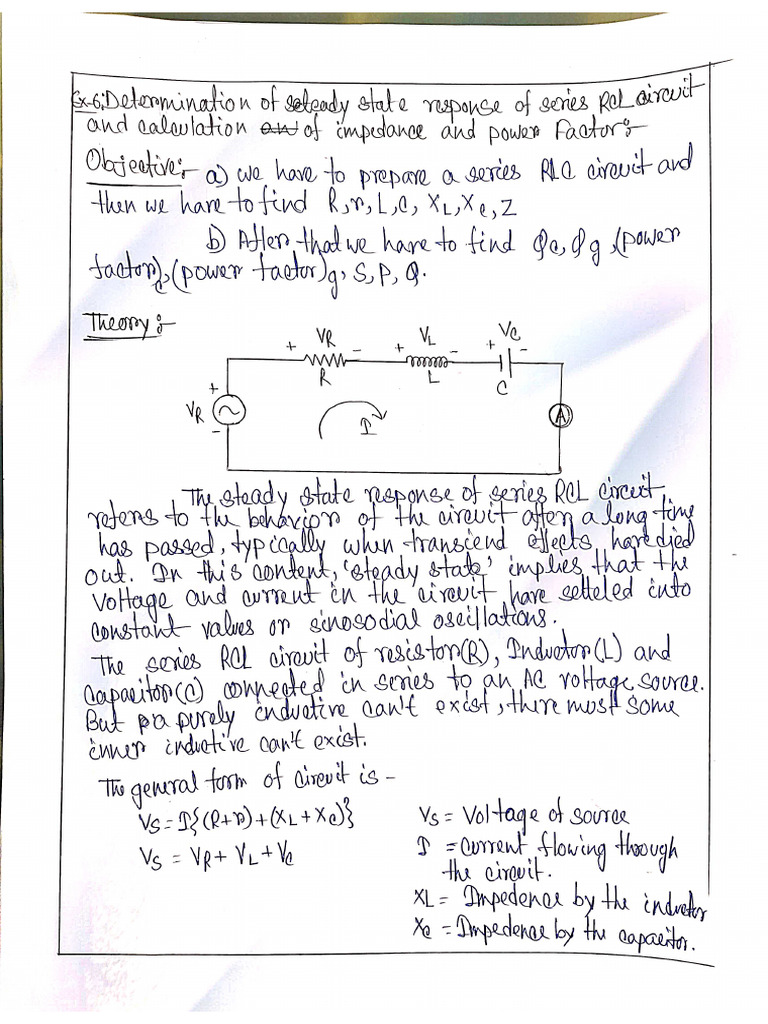 Ex-6: Determination of steady state response of series RCL circuit
and calculation of impedance and power Factor:-
Objective:- a) we have to prepare a series RLC circuit and
then we have to find R, r, L, C, XL, Xc, Z
b) After that we have to find φc, φg, (power
factor)c, (power factor)g, S, P, Q.
Theory:-
+ VR - + VL - + VC -
R L C
+
VR
-
I
A
The steady state response of series RCL circuit
refers to the behavior of the circuit after a long time
has passed, typically when transciend effects have died
out. In this content, 'steady state' implies that the
voltage and current in the circuit have setteled into
constant values or sinosodial oscillations.
The series RCL circuit of resistor(R), Inductor(L) and
Capacitor(C) connected in series to an AC voltage source.
But a purely inductive can't exist, there must some
inner inductive can't exist.
The general form of circuit is -
Vs = I{(R+r)+(XL+Xc)}
Vs = VR + VL + Vc
Vs = Voltage of source
I = Current flowing through
the circuit.
XL = Impedence by the inductor
Xc = Impedence by the capacitor.